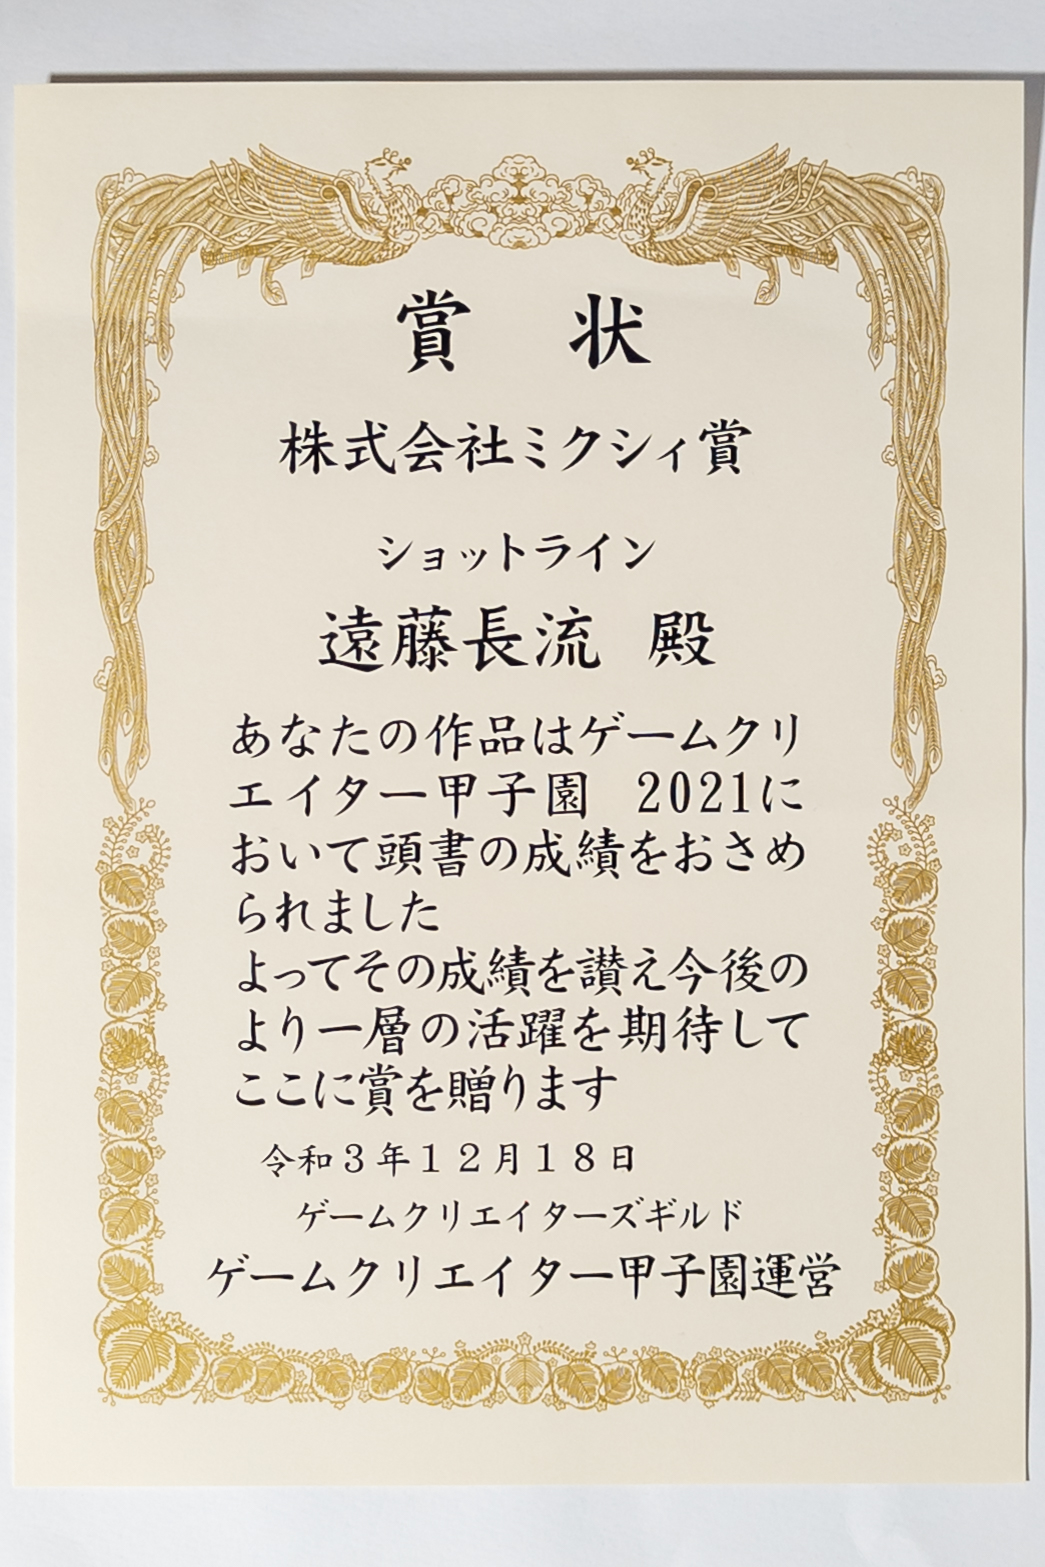 賞　状
株式会社ミクシィ賞
ショットライン
遠藤長流　殿
あなたの作品はゲームクリ
エイター甲子園　2021に
おいて頭書の成績をおさめ
られました
よってその成績を讃え今後の
より一層の活躍を期待して
ここに賞を贈ります
令和３年１２月１８日
ゲームクリエイターズギルド
ゲームクリエイター甲子園運営